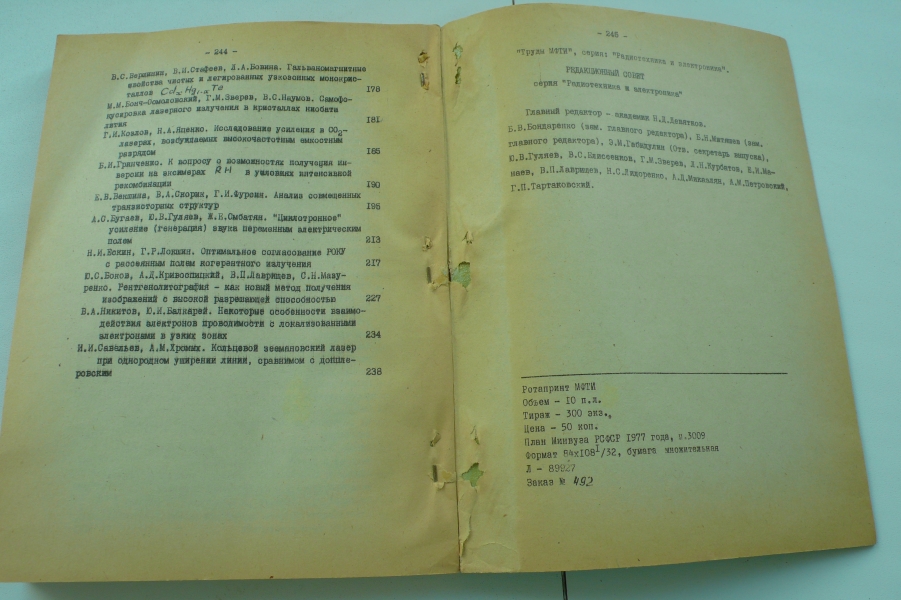 - 244 -
В.С.Вершинин, В.И.Стафеев, Л.А.Бовина. Гальваномагнитные
свойства чистых и легированных узкозонных монокрис-
таллов CdxHg1-xTe 178
М.М.Бонч-Осмоловский, Г.М.Зверев, В.С.Наумов. Самофо-
кусировка лазерного излучения в кристаллах ниобата
лития 181
Г.И.Козлов, Н.А.Яценко. Исследование усиления в CO2-
лазерах, возбуждаемых высокочастотным емкостным
разрядом 185
Б.И.Гринченко. К вопросу о возможностях получения ин-
версии на эксимерах RH в условиях интенсивной
рекомбинации 190
Е.В.Веншина, В.А.Скорин, Г.И.Фурсин. Анализ совмещенных
транзисторных структур 195
А.С.Бугаев, Ю.В.Гуляев, Ж.Н.Смбатян. "Циклотронное"
усиление (генерация) звука переменным электрическим
полем 213
Н.И.Ескин, Г.Р.Локшин. Оптимальное согласование РОКУ
с рассеянным полем когерентного излучения 217
Ю.С.Боков, А.Д.Кривоспицкий, В.П.Лаврищев, С.Н.Мазу-
ренко. Рентгенолитография - как новый метод получения
изображений с высокой разрешающей способностью 227
В.А.Никитов, Ю.И.Балкарей. Некоторые особенности взаимо-
действия электронов проводимости с локализованными
электронами в узких зонах 234
И.И.Савельев, А.М.Хромых. Кольцевой зеемановский лазер
при однородном уширении линии, сравнимом с доппле-
ровским 238
- 245 -
"Труды МФТИ", серия: "Радиотехника и электроника".
РЕДАКЦИОННЫЙ СОВЕТ
серии "Радиотехника и электроника"
Главный редактор - академик Н.Д.Девятков.
Б.В.Бондаренко (зам. главного редактора), Е.Н.Матвеев (зам.
главного редактора), Э.М.Габидулин (Отв. секретарь выпуска),
Ю.В.Гуляев, В.С.Елисеенков, Г.М.Зверев, Л.Н.Курбатов, В.И.Ма-
наев, В.П.Лаврищев, Н.С.Лидоренко, А.Л.Микаэлян, А.М.Петровский,
Г.П.Тартаковский.
Ротапринт МФТИ
Объем - 10 п.л.
Тираж - 300 экз.
Цена - 50 коп.
План Минвуза РСФСР 1977 года, п.3009
Формат 84x108 1/32, бумага множительная
Л - 89927
Заказ № 492